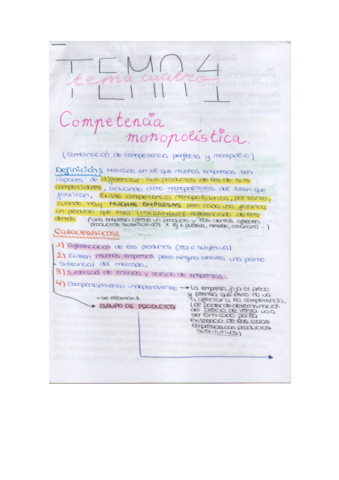 TEMA 4
tema cuatro
Competencia
monopolística.
(combinación de competencia perfecta y monopolio)
Definición: Mercado en el que muchas empresas son
capaces de diferenciar sus productos de los de sus
competidores, actuando como monopolistas del bien que
fabrican. Existe competencia monopolística, por tanto,
cuando hay MUCHAS EMPRESAS pero cada una fabrica
un producto que está LIGERAMENTE diferenciado de los
demás (una empresa ofrece un producto y las demás ofrecen
productos sustitutivos
Características:
1) diferenciación de los productos (real o subjetiva)
2) Existen muchas empresas pero ninguna abarca una parte
sustancial del mercado.
3) Libertad de entrada y salida de empresas.
4) Comportamiento independiente → la empresa fija el precio
y piensa que esto no va
a afectar a la competencia.
(el poder de determinación
del precio de venta va a
ser limitado por la
existencia de las otras
empresas con productos
sustitutivos)
se examina
GRUPO DE PRODUCTOS